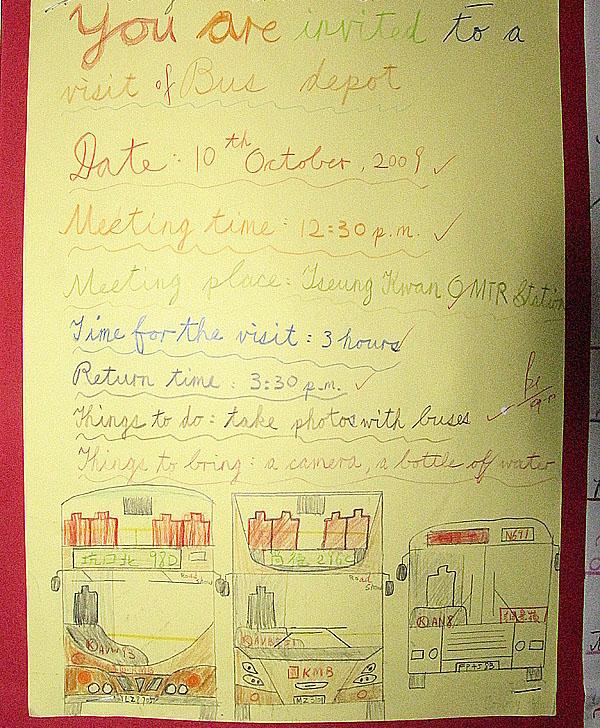 You are invited to a
visit of Bus depot
Date: 10th October, 2009
Meeting time: 12:30 p.m.
Meeting place: Tseung Kwan O MTR Station
Time for the visit: 3 hours
Return time: 3:30 p.m.
Things to do: take photos with buses
Things to bring: a camera, a bottle off water
坑口北 98D
Road Show
Road Show
N691
AN8
KMB